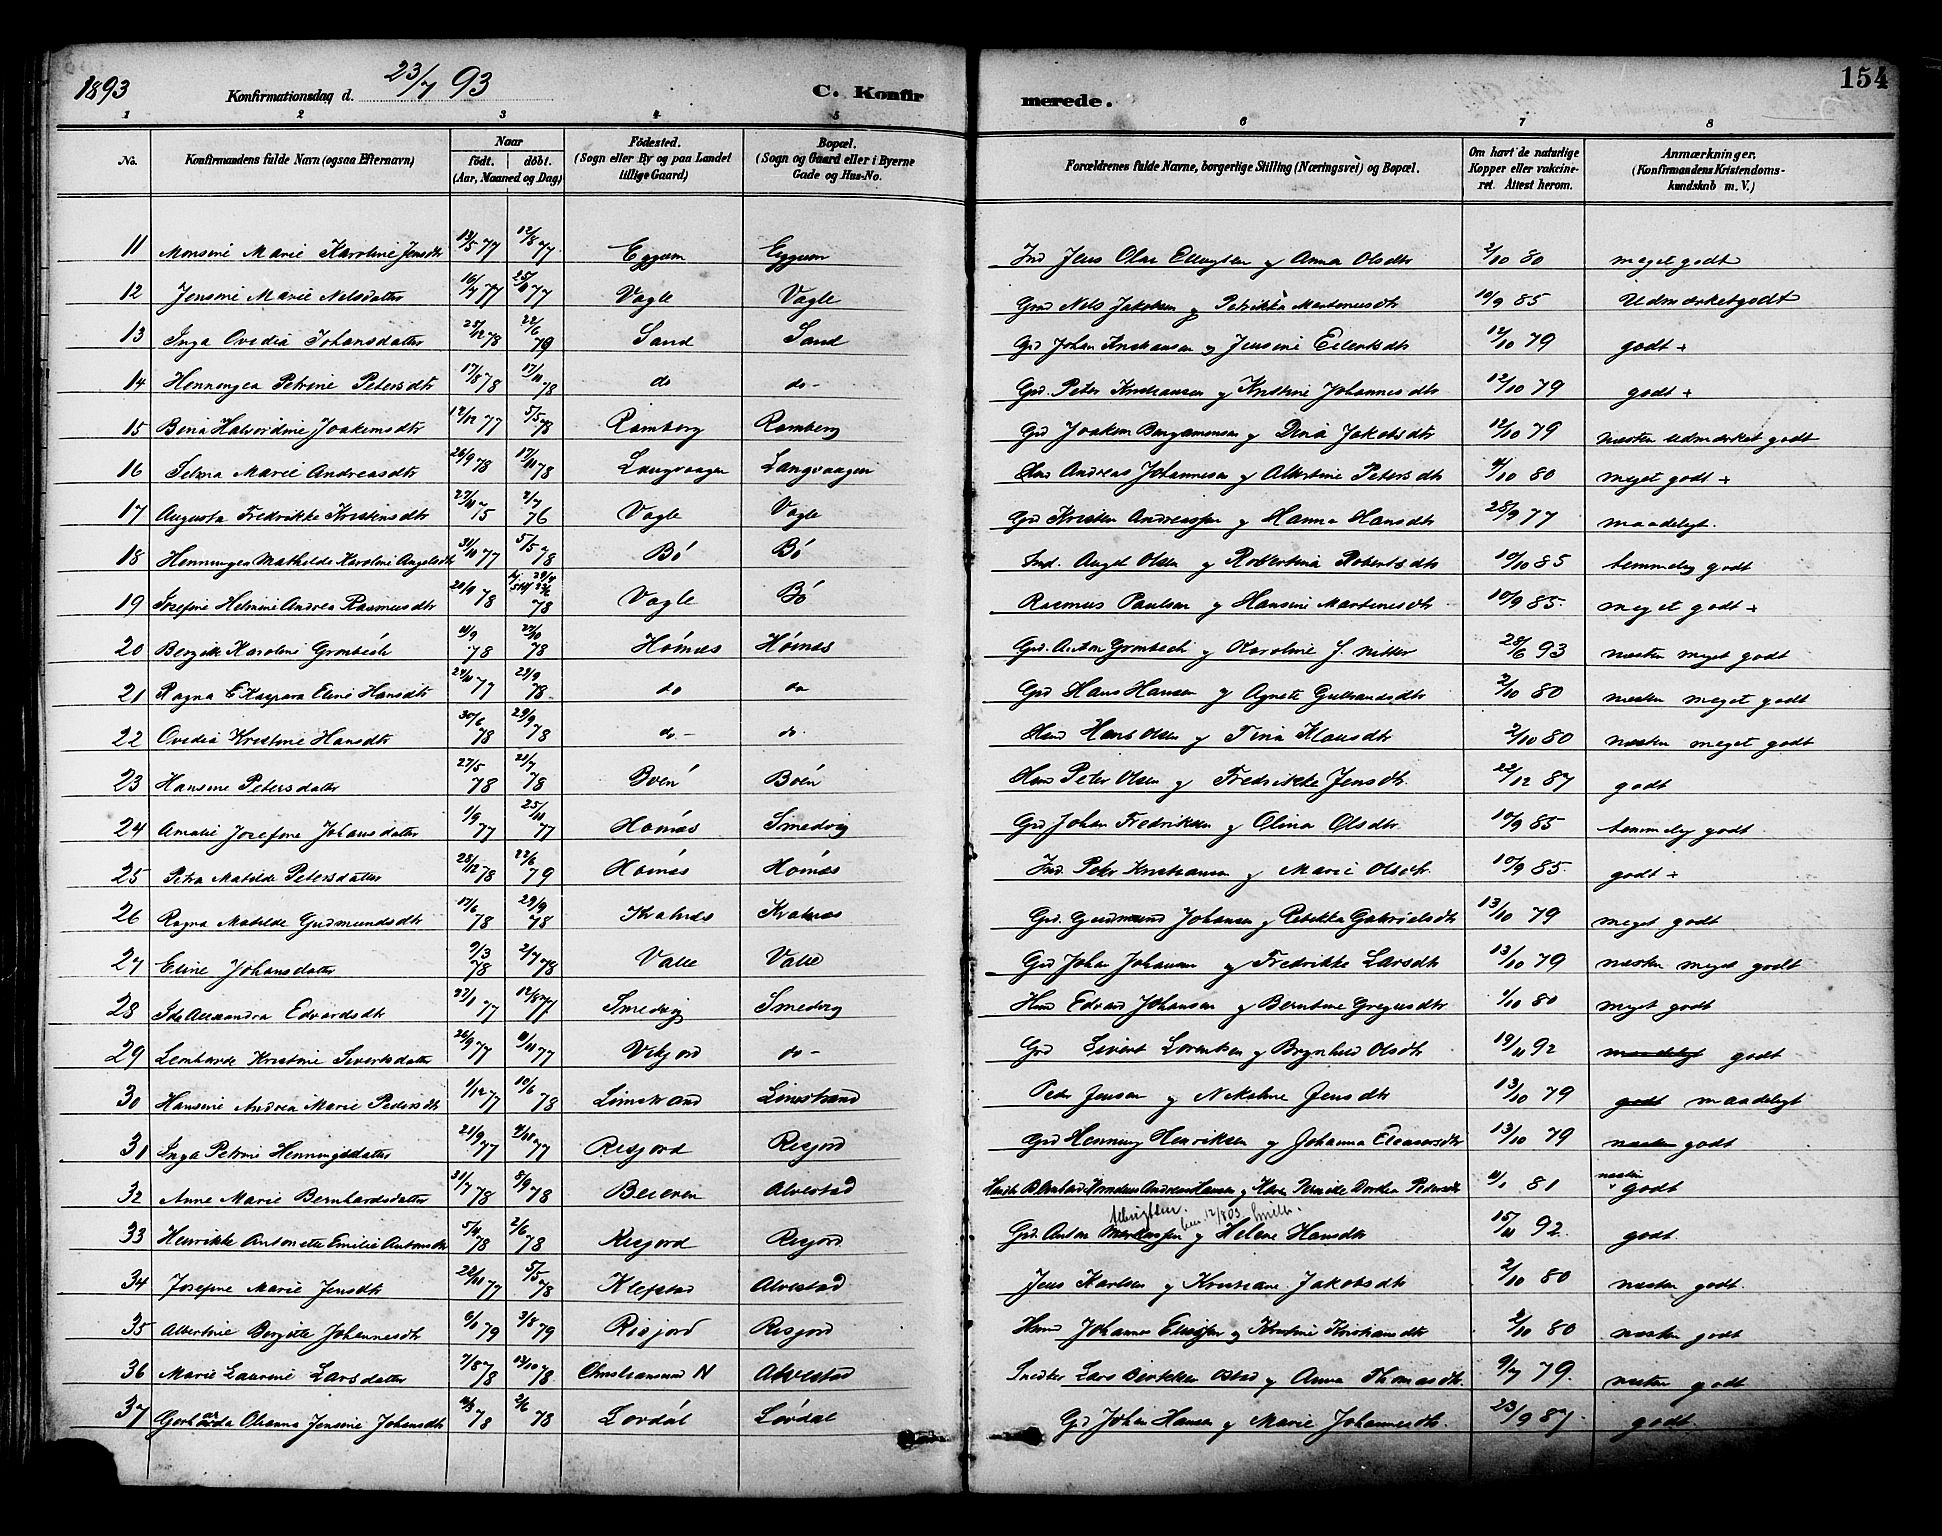 1893 Konfirmationsdag d. 23/7 93 C. Konfirmerede. 154
1 2 3 4 5 6 7 8
No. Konfirmandens fulde Navn (ogsaa Efternavn) Naar født. døbt. (Aar, Maaned og Dag) Fødested. (Sogn eller By og paa Landet tillige Gaard) Bopæl. (Sogn og Gaard eller i Byerne Gade og Hus-No. Forældrenes fulde Navne, borgerlige Stilling (Næringsvei) og Bopæl. Om havt de naturlige Kopper eller vakcineret. Attest herom. Anmærkninger. (Konfirmandens Kristendomskundskab m. V.)
11 Monsine Marie Karoline Jensdtr 13/5 77 12/8 77 Eggum Eggum Ind Jens Olai Ellingsen og Anna Olsdtr 2/10 80 meget godt
12 Jensine Marie Nelsdatter 16/7 77 25/11 77 Vagle Vagle Grd Nels Jakobsen og Petrikka Martinusdtr 10/9 85 Udmærket godt
13 Inga Ovedia Johansdatter 25/12 78 22/6 79 Sand Sand Grd Johan Kristiansen og Jensine Eilertsdtr 12/10 79 godt +
14 Henningea Petrine Petersdtr 17/8 78 17/11 78 do do- Grd. Peter Kristiansen og Kristine Johannesdtr 12/10 79 godt +
15 Beria Halvordine Joakimsdtr 12/12 77 5/5 78 Ramberg Ramberg Grd Joakim Bengamensen og Dina Jakobsdtr 12/10 79 næsten udmærket godt
16 Marie Andreasdtr 26/9 78 17/11 78 Langvaagen Langvaagen Andreas Johannesen og Albertine Petersdtr /10 80 meget godt +
17 Augusta Fredrikke Kristensdtr 27/11 75 2/7 76 Vagle Vagle Grd Kristen Andreassen og Hanna Hansdtr 28/9 77 maadeligt.
18 Henningea Mathilde Karoline Angelsdtr 31/10 77 5/5 78 Bø Bø Ind. Angel Olsen og Robertina Robertsdtr 10/10 85 temmelig godt
19 Josefine Helmine Andrea Rasmusdtr 78 78 Vagle Bø Rasmus Paulsen og Hansine Martinesdtr 10/9 85. meget godt +
20 Bergitte Karoline Grønbech 11/9 78 27/10 78 Hømæs Hømæs Grd. Anton Grønbech og Karoline J. 28/6 93 næsten meget godt
21 Ragna E Kaspara Eline Hansdtr 77 29/9 78. do do Grd Hans Hansen og Agnete Gulbrandsdtr 2/10 80 næsten meget godt
22 Ovedia Kristine Hansdtr 30/6 78 29/9 78 do- do. Hans Olsen og Tina Klausdtr 2/10 80 næsten meget godt
23 Hansine Petersdatter 27/5 78 21/7 78 Bøen Bøen Peter Olsen og Fredrikke Jensdtr. 22/12 87 godt
24 Amalie Josefine Johansdatter 1/9 77 25/11 77 Hømæs Smedvig Grd Johan Fredriksen og Olina Olsdtr. 10/9 85 temmelig godt.
25 Petra Matilde Petersdatter 28/12 78 22/6 79 Hømæs Hømæs Ind. Peter Kristiansen og Marie Olsdtr. 10/9 85. godt +
26 Ragna Matilde Gudmundsdtr 17/6 78 29/9 78 Kvalnæs Kvalnæs Grd. Gudmund Johansen og Rebekka Gabrielsdtr 13/10 79 meget godt
27 Eline Johansdatter 9/3 78 2/7 78 Valle Valle Grd Johan Johansen og Fredrikke Larsdtr 13/10 79 næsten meget godt
28 Ida Alexandra Edvardsdtr 77 12/8 77 Smedvig Smedvig Hmd Edvard Johansen og Berntine Gregusdtr 1/10 80 meget godt
29 Lenharde Kristine Sivertsdatter 26/9 77 11/11 77 Vikjord do- Grd Sivert Lorentsen og Brynhild Olsdtr 19/11 92 maadeligt godt
30 Hansine Andrea Marie Pedersdtr 1/12 77 10/6 78 Limstrand Limstrand Peder Jensen og Nekoline Jensdtr 13/10 79 godt maadeligt
31 Inga Petrine Henningsdatter 21/9 77 77 Resjord Resjord Grd Henning Henriksen og Johanna Eleasersdtr 13/10 79 næsten godt
32 Anne Marie Bernhardsdatter 31/7 78 8/9 78 Beieren Alvestad Bernhard Andreas Hansen og Karen Dordea Pedersdtr 81 næsten godt
33 Henrikke Antonette Emilie Antonsdtr 78 2/6 78 Resjord Resjord Grd. Anton Ellingsen. og Helene Hansdtr 15/11 92. godt
34 Josefine Marie Jensdtr 22/11 77 5/5 78 Klepstad Alvestad Jens Karlsen og Kristiane Jakobsdtr 2/10 80 næsten godt.
35 Albertine Bergitte Johannesdtr 6/1 79 3/8 79 Risjord Resjord Hmd Johannes og Kristine Kristiansdtr 2/10 80 næsten godt
36 Marie Laurine Larsdatter 7/8 78 13/10 78 Christiansund N Alvestad Snedker Lars og Anna Thomasdtr. 9/7 79. næsten godt
37 Olianna Jensine Johansdtr 78 2/6 78 Løvdal Løvdal Grd Johan Hansen og Marie Johannesdtr. 23/9 87. godt.